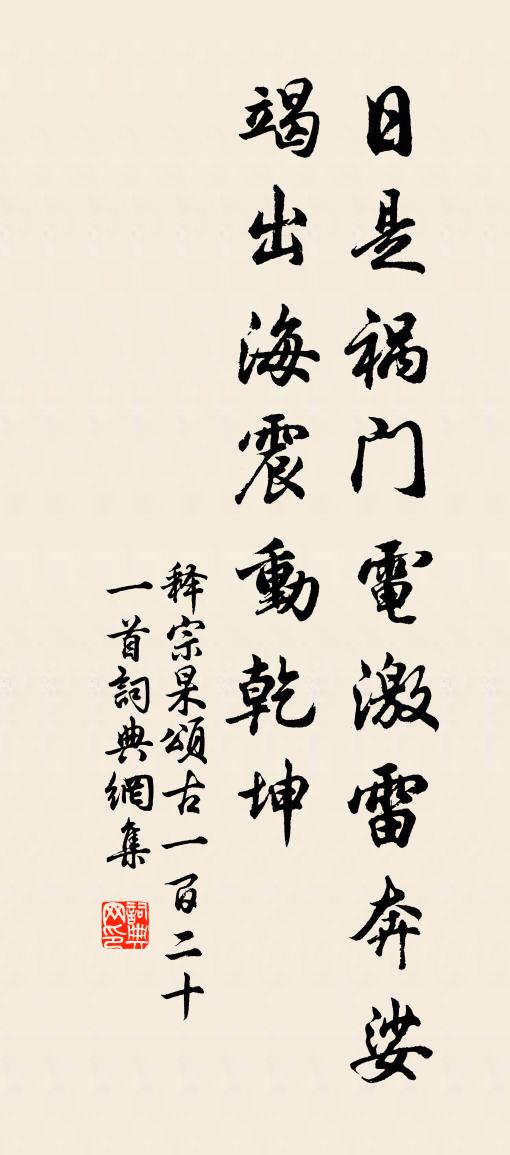 日是祸门電激雷奔娑
竭出海震動乾坤
释宗杲頌古一百二十
一首詞典網集
詞典网印